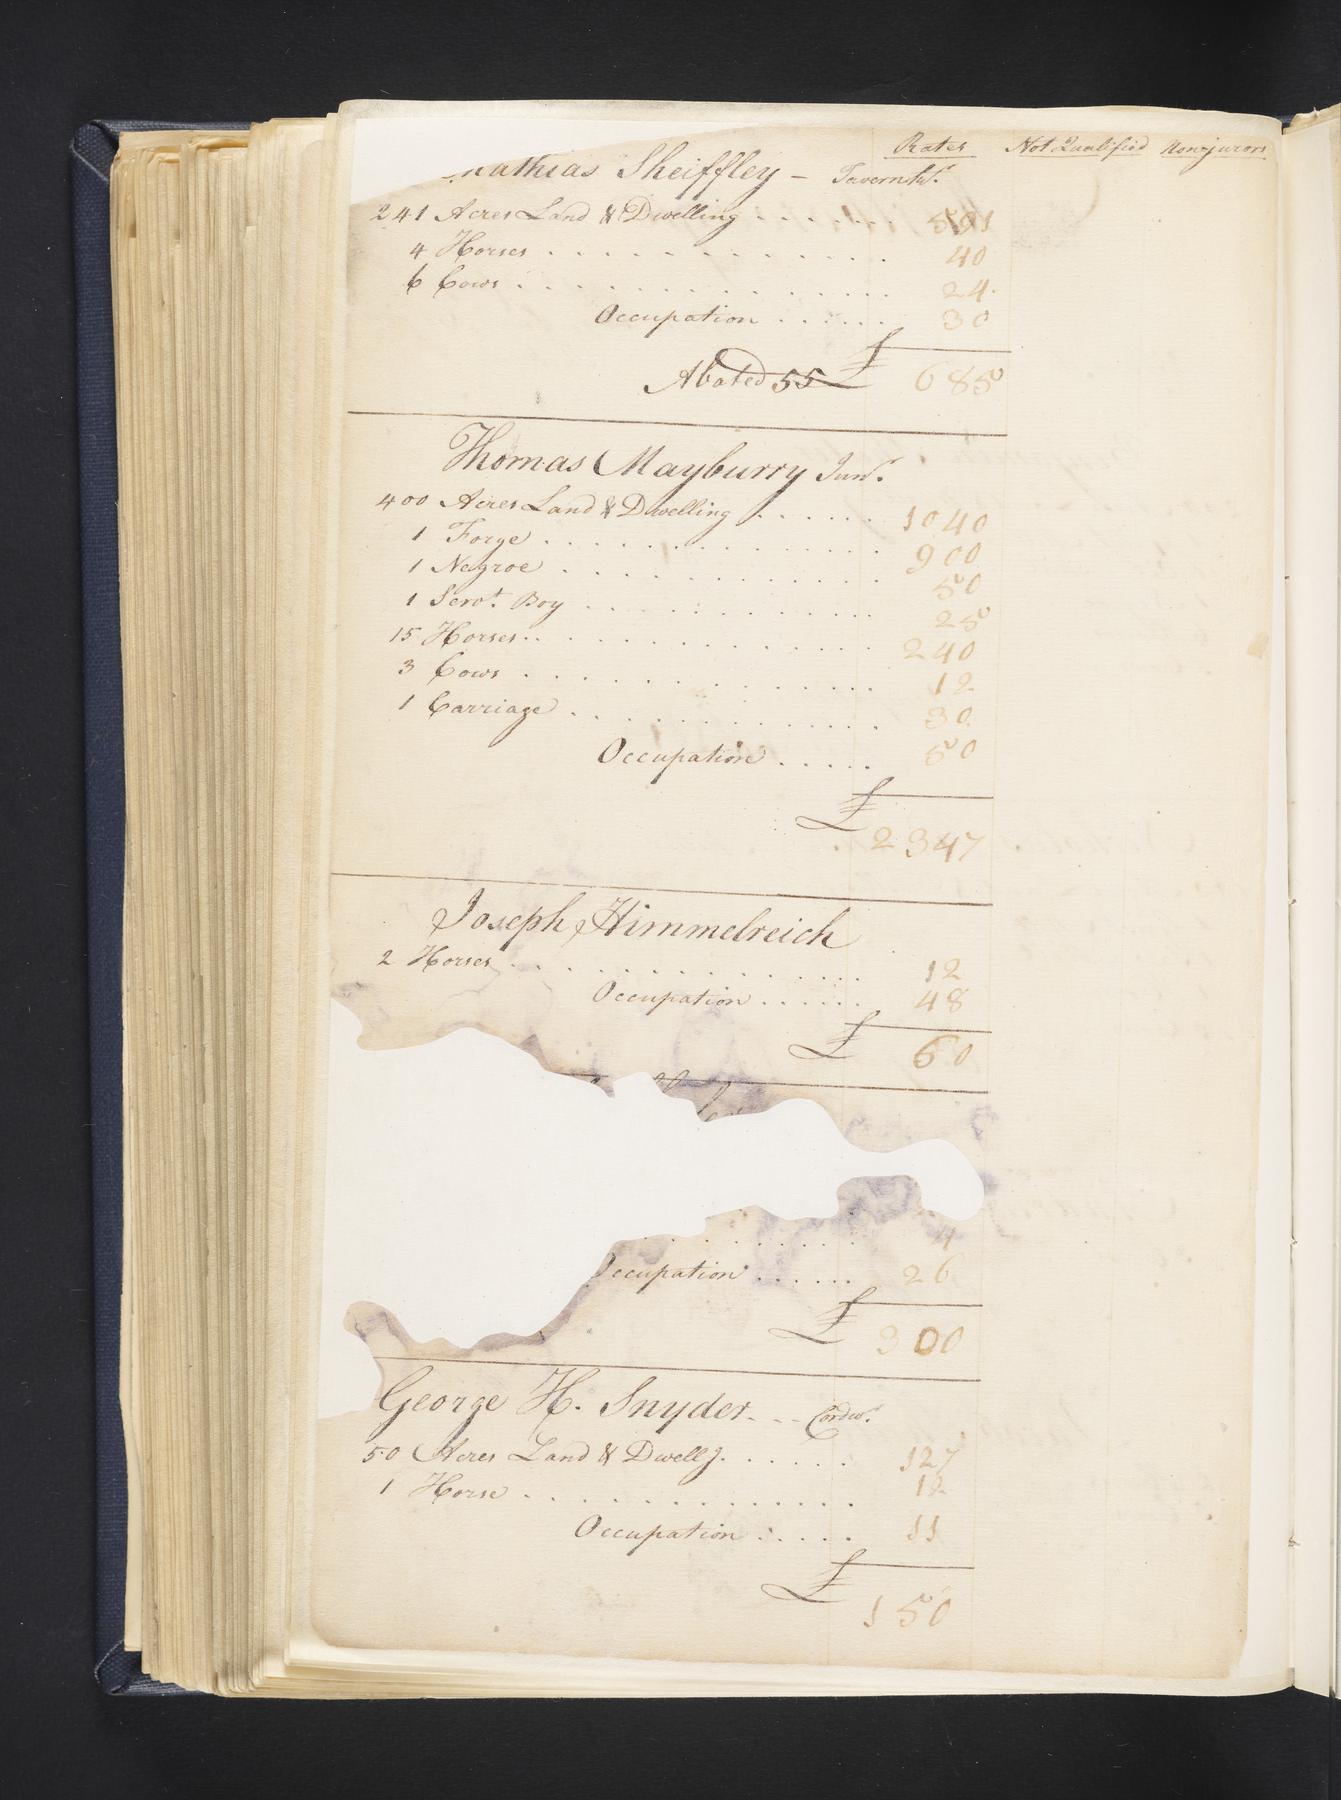 Rates Not Qualified Nonjurors
Mathias Sheiffley - Tavernkr.
241 Acres Land & Dwelling . . . . . . 591
4 Horses . . . . . . 40
6 Cows . . . . . . 24.
Occupation . . . . . . 30
Abated 55 £ 685
Thomas Mayburry Junr.
400 Acres Land & Dwelling . . . . . . 1040
1 Forge . . . . . . 900
1 Negroe . . . . . . 50
1 Servt. Boy . . . . . . 25
15 Horses . . . . . . 240
3 Cows . . . . . . 12
1 Carriage . . . . . . 30
Occupation . . . . . 50
£ 2347
Joseph Himmelreich
2 Horses . . . . . . 12
Occupation . . . . . . 48
£ 60
. . . . . . 4
Occupation . . . . . . 26
£ 300
George H. Snyder - - - Cordwr.
50 Acres Land & Dwellg. . . . . . 127
1 Horse . . . . . . 12
Occupation . . . . . 11
£ 150